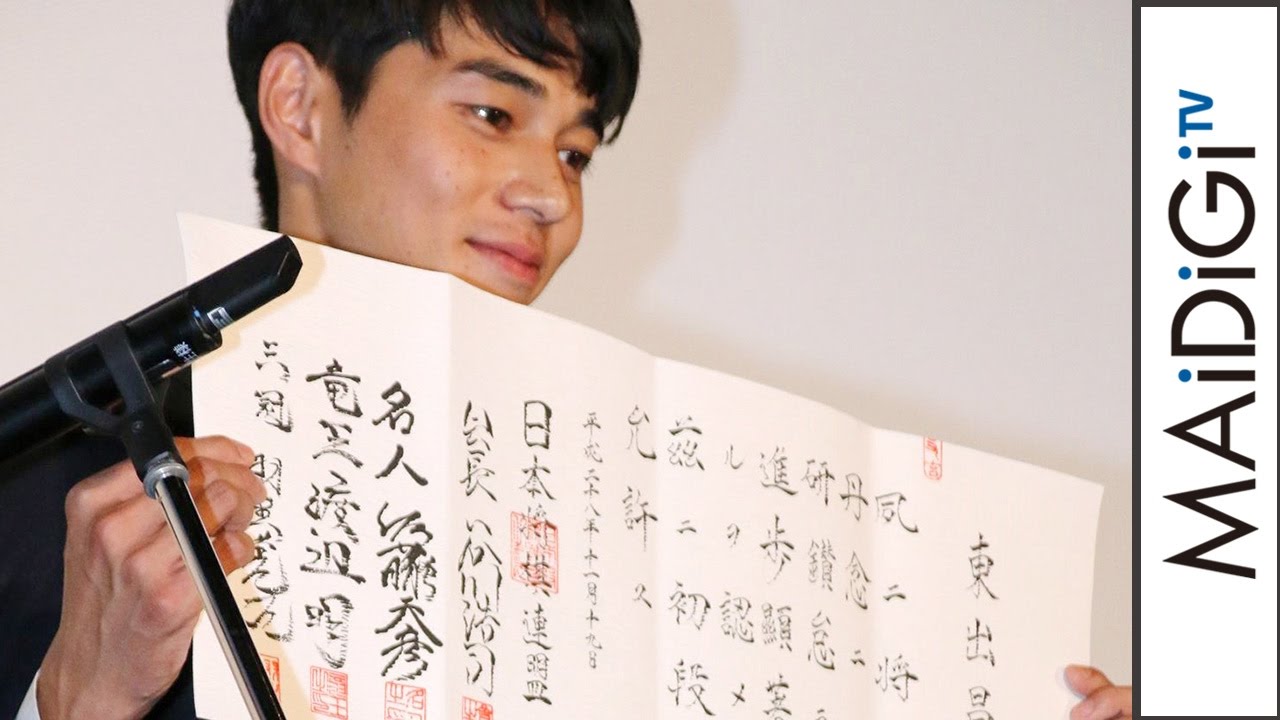 東出昌
夙ニ将
丹念ニ
研鑽怠
進歩顕著
ルヲ認メ
茲ニ初段
允許ス
平成二十八年十一月十九日
日本将棋連盟
会長 谷川浩司
名人 佐藤天彦
竜王 渡辺明
三冠 羽生善治
MAiDiGiTV